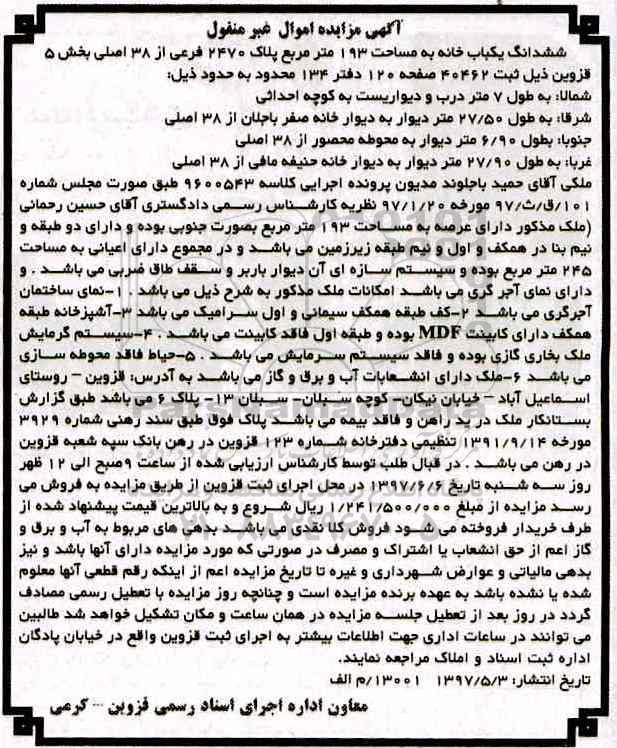 آگهی مزایده اموال غیر منقول
ششدانگ یکباب خانه به مساحت ۱۹۳ متر مربع پلاک ۲۴۷۰ فرعی از ۳۸ اصلی بخش ۵
قزوین ذیل ثبت ۴۰۴۶۲ صفحه ۱۲۰ دفتر ۱۳۴ محدود به حدود ذیل:
شمالا: به طول ۷ متر درب و دیواریست به کوچه احداثی
شرقا: به طول ۲۷/۵۰ متر دیوار به دیوار خانه صفر باجلان از ۳۸ اصلی
جنوبا: بطول ۶/۹۰ متر دیوار به محوطه محصور از ۳۸ اصلی
غربا: به طول ۲۷/۹۰ متر دیوار به دیوار خانه حنیفه مافی از ۳۸ اصلی
ملکی آقای حمید باجلوند مدیون پرونده اجرایی کلاسه ۹۶۰۰۵۴۳ طبق صورت مجلس شماره
۱۰۱/ق/ث/۹۷ مورخه ۹۷/۱/۲۰ نظریه کارشناس رسمی دادگستری آقای حسین رحمانی
(ملک مذکور دارای عرصه به مساحت ۱۹۳ متر مربع بصورت جنوبی بوده و دارای دو طبقه و
نیم بنا در همکف و اول و نیم طبقه زیرزمین می باشد و در مجموع دارای اعیانی به مساحت
۲۴۵ متر مربع بوده و سیستم سازه ای آن دیوار باربر و سقف طاق ضربی می باشد . و
دارای نمای آجر گری می باشد امکانات ملک مذکور به شرح ذیل می باشد . ۱-نمای ساختمان
آجرگری می باشد ۲-کف طبقه همکف سیمانی و اول سرامیک می باشد ۳-آشپزخانه طبقه
همکف دارای کابینت MDF بوده و طبقه اول فاقد کابینت می باشد . ۴-سیستم گرمایش
ملک بخاری گازی بوده و فاقد سیستم سرمایش می باشد . ۵-حیاط فاقد محوطه سازی
می باشد ۶-ملک دارای انشعابات آب و برق و گاز می باشد به آدرس: قزوین - روستای
اسماعیل آباد - خیابان نیکان- کوچه سبلان- سبلان ۱۳- پلاک ۶ می باشد طبق گزارش
بستانکار ملک در ید راهن و فاقد بیمه می باشد پلاک فوق طبق سند رهنی شماره ۳۹۲۹
مورخه ۱۳۹۱/۹/۱۴ تنظیمی دفترخانه شماره ۱۲۳ قزوین در رهن بانک سپه شعبه قزوین
در رهن می باشد . در قبال طلب توسط کارشناس ارزیابی شده از ساعت ۹صبح الی ۱۲ ظهر
روز سه شنبه تاریخ ۱۳۹۷/۶/۶ در محل اجرای ثبت قزوین از طریق مزایده به فروش می
رسد مزایده از مبلغ ۱/۲۴۱/۵۰۰/۰۰۰ ریال شروع و به بالاترین قیمت پیشنهاد شده از
طرف خریدار فروخته می شود فروش کلا نقدی می باشد بدهی های مربوط به آب و برق و
گاز اعم از حق انشعاب یا اشتراک و مصرف در صورتی که مورد مزایده دارای آنها باشد و نیز
بدهی مالیاتی و عوارض شهرداری و غیره تا تاریخ مزایده اعم از اینکه رقم قطعی آنها معلوم
شده یا نشده باشد به عهده برنده مزایده است و چنانچه روز مزایده با تعطیل رسمی مصادف
گردد در روز بعد از تعطیل جلسه مزایده در همان ساعت و مکان تشکیل خواهد شد طالبین
می توانند در ساعات اداری جهت اطلاعات بیشتر به اجرای ثبت قزوین واقع در خیابان پادگان
اداره ثبت اسناد و املاک مراجعه نمایند.
تاریخ انتشار: ۱۳۹۷/۵/۳ ۱۳۰۰۱/م الف
معاون اداره اجرای اسناد رسمی قزوین - کرمی